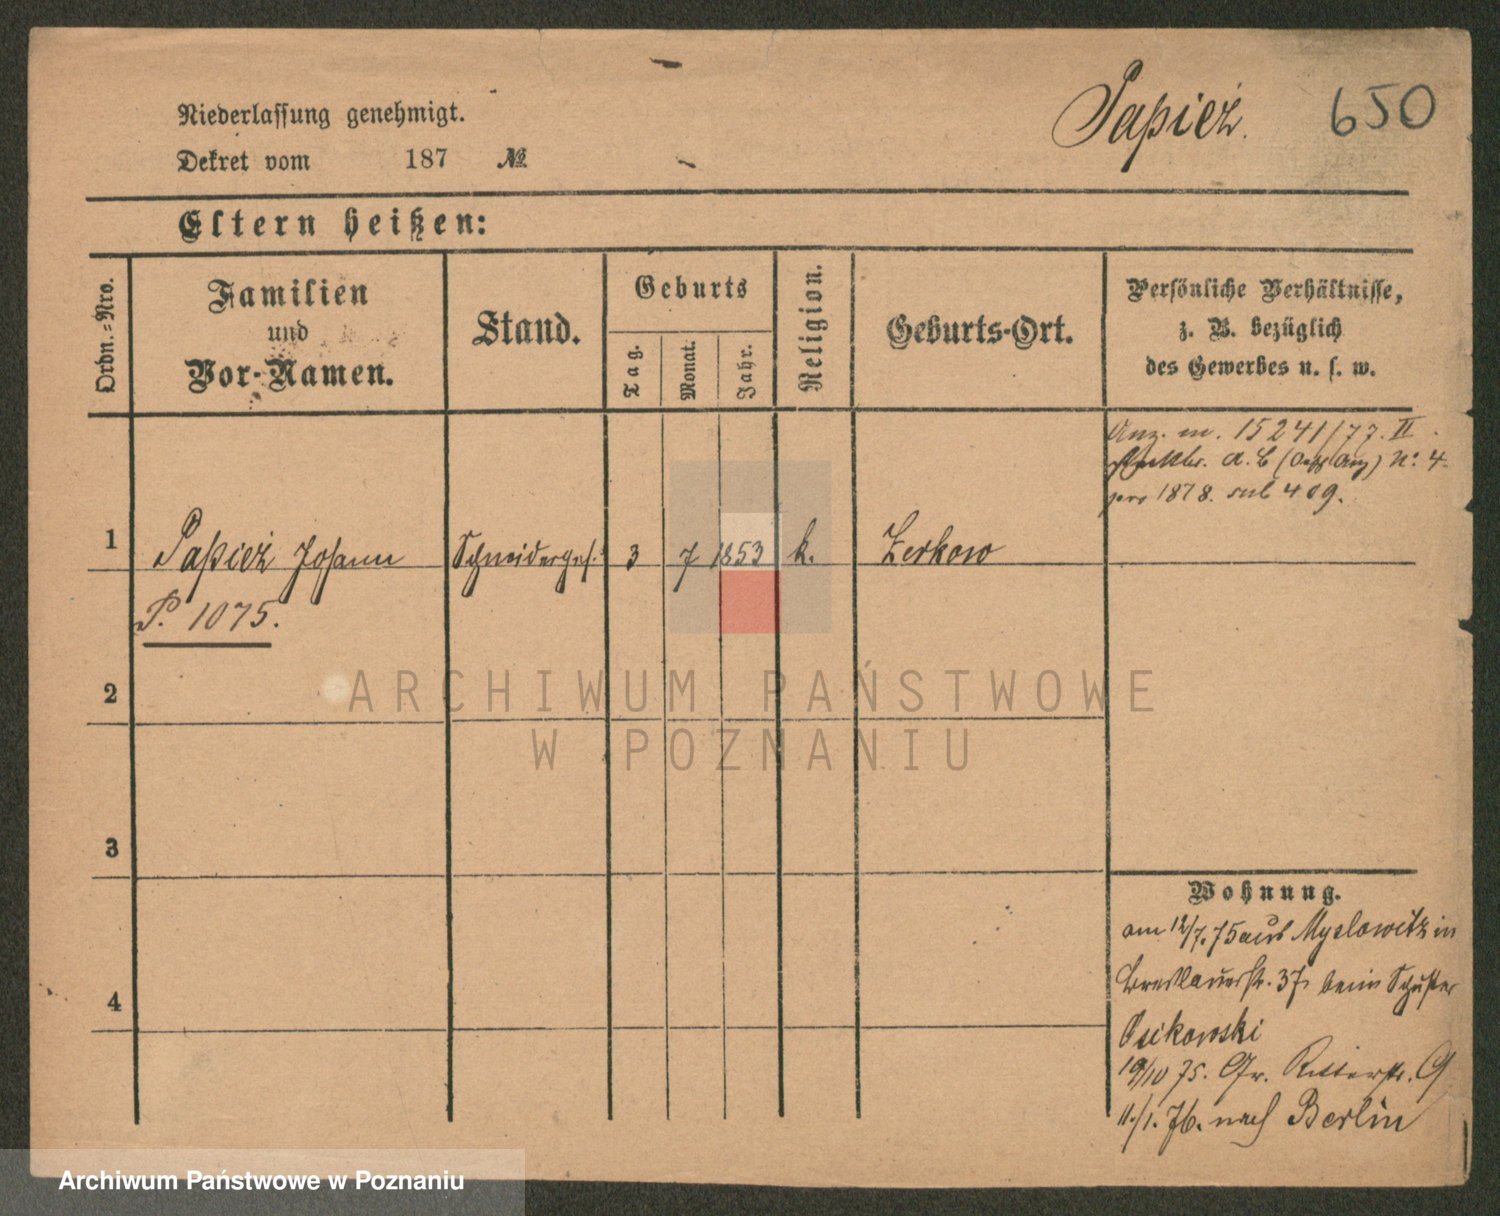 Niederlassung genehmigt.
Dekret vom 187 №
Papież.
650
Eltern heißen:
Ordn.=Nro.
Familien
und
Vor-Namen.
Stand.
Geburts
Tag.
Monat.
Jahr.
Religion.
Geburts-Ort.
Persönliche Verhältnisse,
z. B. bezüglich
des Gewerbes u. s. w.
Anz. m. 15241/77. II.
a. b No 4
pro 1878. sub 409.
1 Papież Johann Schneiderges. 3 7 1853 k. Zerkow
P. 1075.
2
3
4
Wohnung.
am 12/7. 75 aus Myslowitz in
Breslauerstr. 37 beim Schuster
Osikowski
19/10 75. Gr. Ritterstr. 9
11./1. 76. nach Berlin
ARCHIWUM PAŃSTWOWE
W POZNANIU
Archiwum Państwowe w Poznaniu